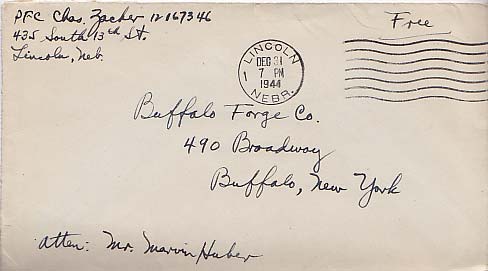 PFC Chas. Zacher 12067346
435 South 13th St.
Lincoln, Neb.
Free
LINCOLN
DEC 31
7 PM
1
1944
NEBR.
Buffalo Forge Co.
490 Broadway
Buffalo, New York
Atten: Mr. Marvin Huber